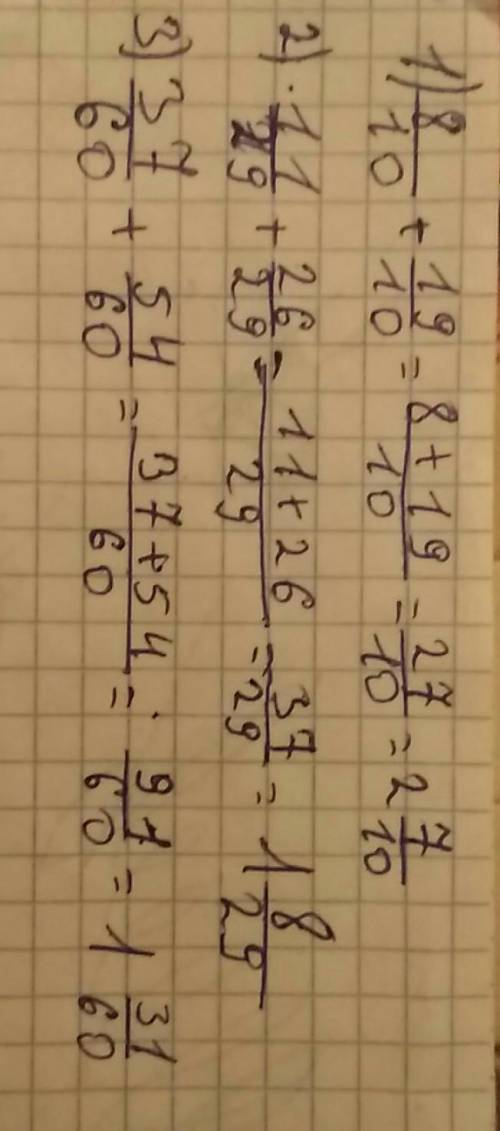 1) 8/10 + 19/10 = 8+19/10 = 27/10 = 2 7/10
2) 11/29 + 26/29 = 11+26/29 = 37/29 = 1 8/29
3) 37/60 + 54/60 = 37+54/60 = 91/60 = 1 31/60